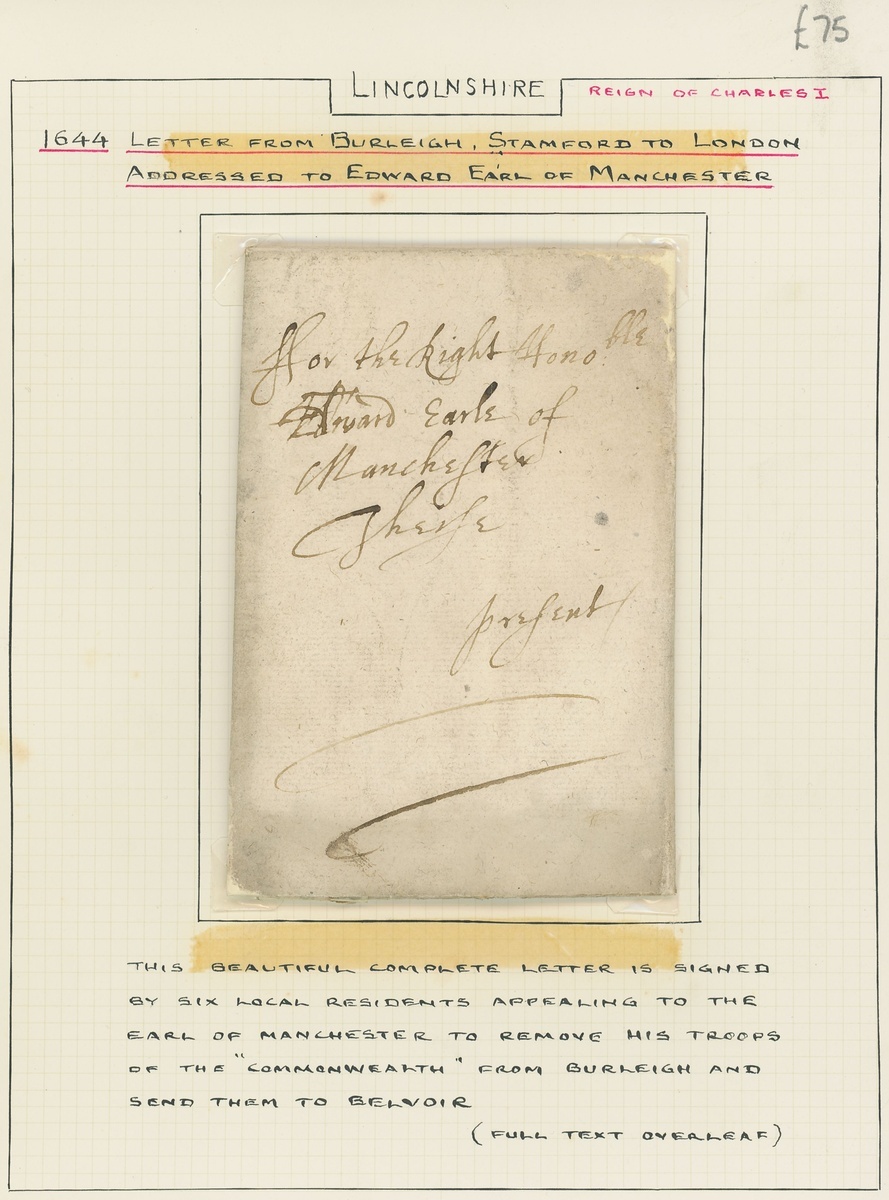 £75
LINCOLNSHIRE
REIGN OF CHARLES I
1644 LETTER FROM BURLEIGH, STAMFORD TO LONDON
ADDRESSED TO EDWARD EARL OF MANCHESTER
ffor the Right Hono.ble
Edward Earle of
Manchester
Theise
present
THIS BEAUTIFUL COMPLETE LETTER IS SIGNED
BY SIX LOCAL RESIDENTS APPEALING TO THE
EARL OF MANCHESTER TO REMOVE HIS TROOPS
OF THE "COMMONWEALTH" FROM BURLEIGH AND
SEND THEM TO BELVOIR
(FULL TEXT OVERLEAF)